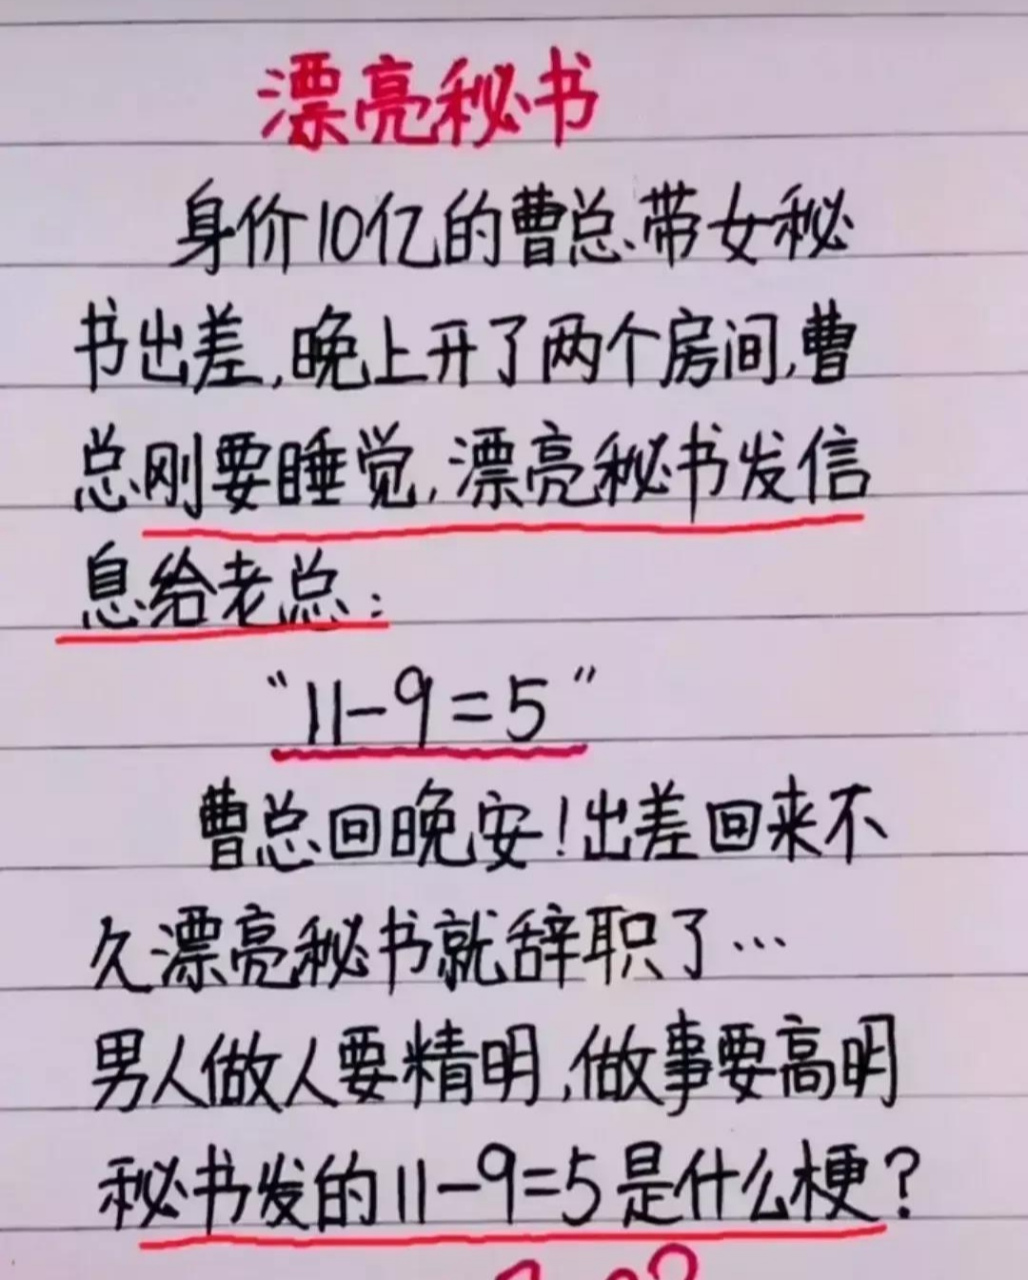 漂亮秘书
身价10亿的曹总带女秘
书出差,晚上开了两个房间,曹
总刚要睡觉,漂亮秘书发信
息给老总:
“11-9=5”
曹总回晚安!出差回来不
久漂亮秘书就辞职了…
男人做人要精明,做事要高明
秘书发的11-9=5是什么梗?